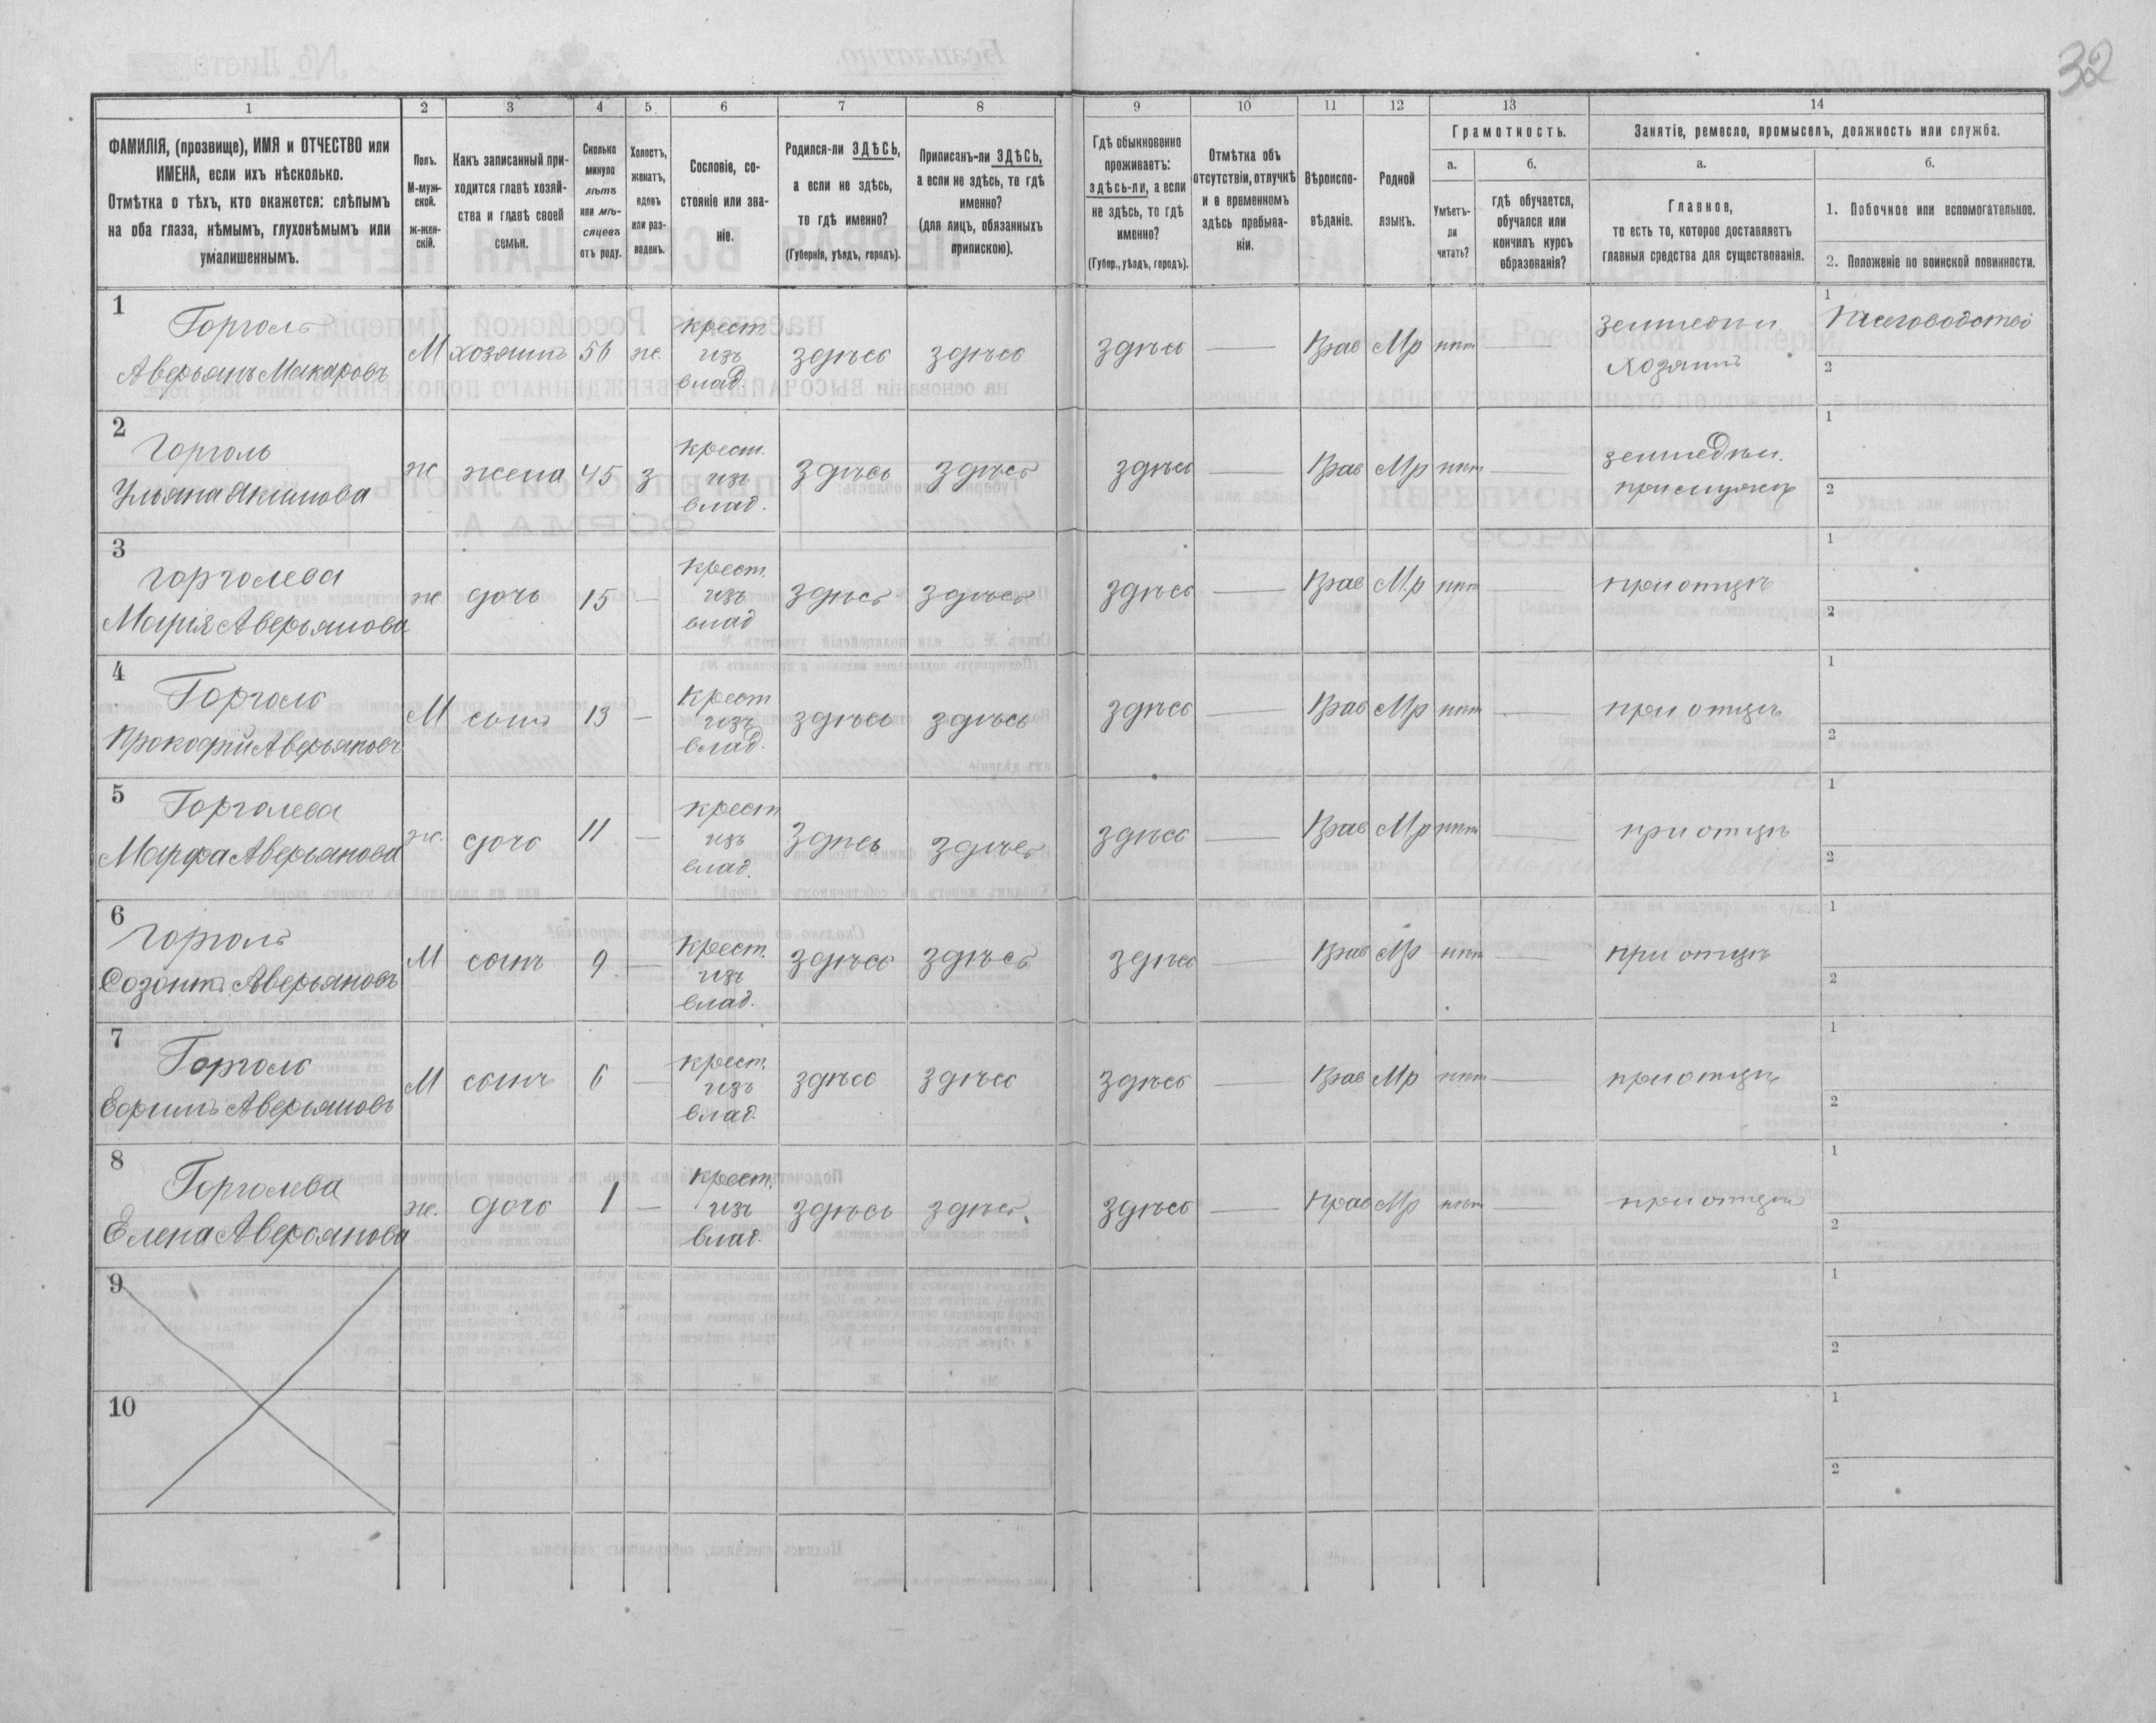 32
1 2 3 4 5 6 7 8 9 10 11 12 13 14
ФАМИЛІЯ, (прозвище), ИМЯ и ОТЧЕСТВО или
ИМЕНА, если ихъ нѣсколько.
Отмѣтка о тѣхъ, кто окажется: слѣпымъ
на оба глаза, нѣмымъ, глухонѣмымъ или
умалишеннымъ.
Полъ.
М-муж-
ской.
ж-жен-
скій.
Какъ записанный при-
ходится главѣ хозяй-
ства и главѣ своей
семьи.
Сколько
минуло
лѣтъ
или мѣ-
сяцевъ
отъ роду.
Холостъ,
женатъ,
вдовъ
или раз-
веденъ.
Сословіе, со-
стояніе или зва-
ніе.
Родился-ли ЗДѢСЬ,
а если не здѣсь,
то гдѣ именно?
(Губернія, уѣздъ, городъ).
Приписанъ-ли ЗДѢСЬ,
а если не здѣсь, то гдѣ
именно?
(для лицъ, обязанныхъ
припискою).
Гдѣ обыкновенно
проживаетъ:
здѣсь-ли, а если
не здѣсь, то гдѣ
именно?
(Губер., уѣздъ, городъ).
Отмѣтка объ
отсутствіи, отлучкѣ
и о временномъ
здѣсь пребыва-
ніи.
Вѣроиспо-
вѣданіе.
Родной
языкъ.
Грамотность.
а.
Умѣетъ-
ли
читать?
б.
гдѣ обучается,
обучался или
кончилъ курсъ
образованія?
Занятіе, ремесло, промыселъ, должность или служба.
а.
Главное,
то есть то, которое доставляетъ
главныя средства для существованія.
б.
1. Побочное или вспомогательное.
2. Положеніе по воинской повинности.
1
Горголь
Аверьянъ Макаровъ
М
хозяинъ
56
же.
крест
изъ
влад.
здѣсь
здѣсь
здѣсь
—
Прав
Мр
нѣт
—
земледѣл.
хозяинъ
1
Пчеловодство
2
2
Горголь
Ульяна Якимова
ж
жена
45
з
крест.
изъ
влад.
здѣсь
здѣсь
здѣсь
—
Прав
Мр
нѣт
—
земледѣл.
1
2
3
Горголева
Марія Аверьянова
ж
дочь
15
—
крест.
изъ
влад
здѣсь
здѣсь
здѣсь
—
Прав
Мр
нѣт
—
при отцѣ
1
2
4
Горголь
Прокофій Аверьяновъ
М
сынъ
13
—
Крест
изъ
влад.
здѣсь
здѣсь
здѣсь
—
Прав
Мр
нѣт
—
при отцѣ
1
2
5
Горголева
Марфа Аверьянова
ж.
дочь
11
—
крест
изъ
влад.
здѣсь
здѣсь
здѣсь
—
Прав
Мр
нѣт
—
при отцѣ
1
2
6
Горголь
Созонтъ Аверьяновъ
М
сынъ
9
—
Крест.
изъ
влад.
здѣсь
здѣсь
здѣсь
—
Прав
Мр
нѣт
—
при отцѣ
1
2
7
Горголь
Ефимъ Аверьяновъ
М
сынъ
6
—
крест.
изъ
влад.
здѣсь
здѣсь
здѣсь
—
Прав
Мр
нѣт
—
при отцѣ
1
2
8
Горголева
Елена Аверьянова
ж.
дочь
1
—
крест.
изъ
влад.
здѣсь
здѣсь
здѣсь
—
Прав
Мр
нѣт
—
при отцѣ
1
2
9
1
2
10
1
2